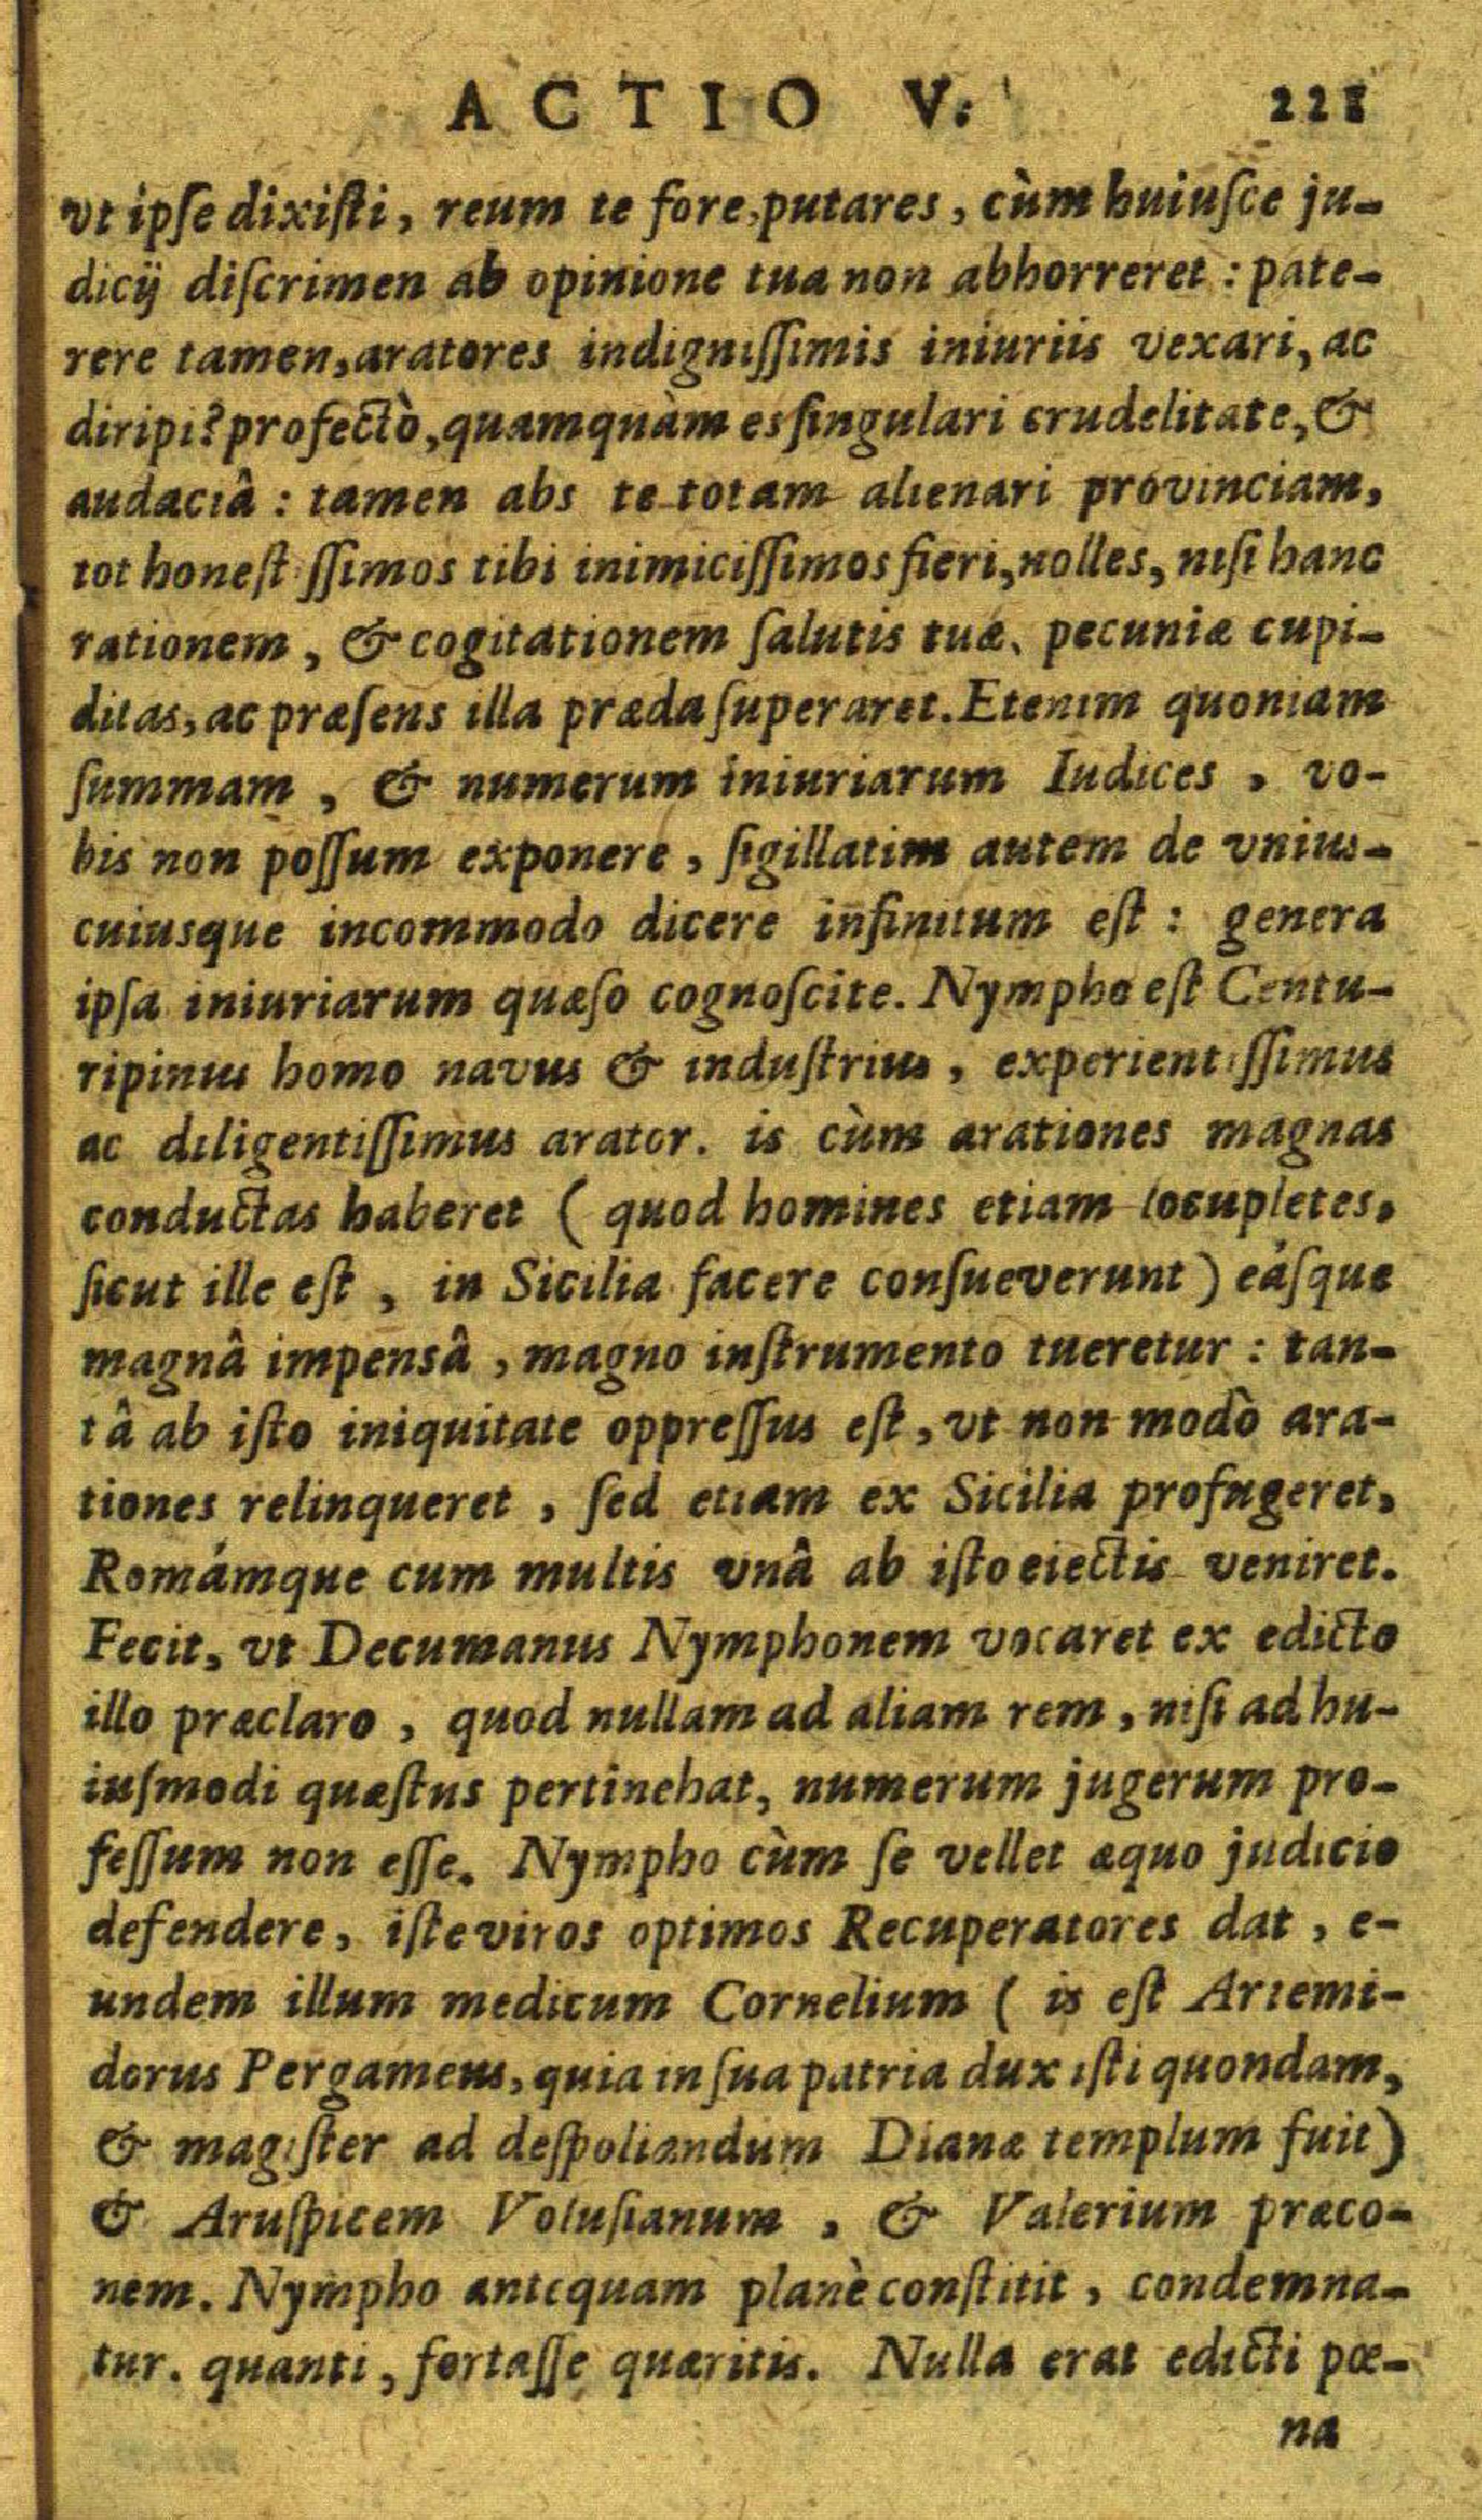 ACTIO V. 221
vt ipſe dixiſti, reum te fore, putares, cùm huiuſce ju-
dicij diſcrimen ab opinione tua non abhorreret : pate-
rere tamen, aratores indigniſſimis iniuriis vexari, ac
diripi? profectò, quamquàm es ſingulari crudelitate, &
audaciâ : tamen abs te totam alienari provinciam,
tot honeſt ſſimos tibi inimiciſſimos fieri, nolles, niſi hanc
rationem, & cogitationem ſalutis tuæ, pecuniæ cupi-
ditas, ac præſens illa præda ſuperaret. Etenim quoniam
ſummam, & numerum iniuriarum Iudices, vo-
bis non poſſum exponere, ſigillatim autem de vnius-
cuiusque incommodo dicere infinitum eſt : genera
ipſa iniuriarum quæſo cognoſcite. Nympho eſt Centu-
ripinus homo navus & induſtrius, experientiſſimus
ac diligentiſſimus arator. is cùm arationes magnas
conductas haberet ( quod homines etiam locupletes,
ſicut ille eſt, in Sicilia facere conſueverunt ) eáſque
magnâ impensâ, magno inſtrumento tueretur : tan-
tâ ab iſto iniquitate oppreſſus eſt, vt non modò ara-
tiones relinqueret, ſed etiam ex Sicilia profugeret,
Romámque cum multis vnâ ab iſto eiectis veniret.
Fecit, vt Decumanus Nymphonem vocaret ex edicto
illo præclaro, quod nullam ad aliam rem, niſi ad hu-
iuſmodi quæſtus pertinebat, numerum jugerum pro-
feſſum non eſſe. Nympho cùm ſe vellet æquo judicio
defendere, iſte viros optimos Recuperatores dat, e-
undem illum medicum Cornelium ( is eſt Artemi-
dorus Pergameus, quia in ſua patria dux iſti quondam,
& magiſter ad deſpoliandum Dianæ templum fuit)
& Aruſpicem Voluſianum, & Valerium præco-
nem. Nympho antequam planè conſtitit, condemna-
tur. quanti, fortaſſe quæritis. Nulla erat edicti pœ-
na